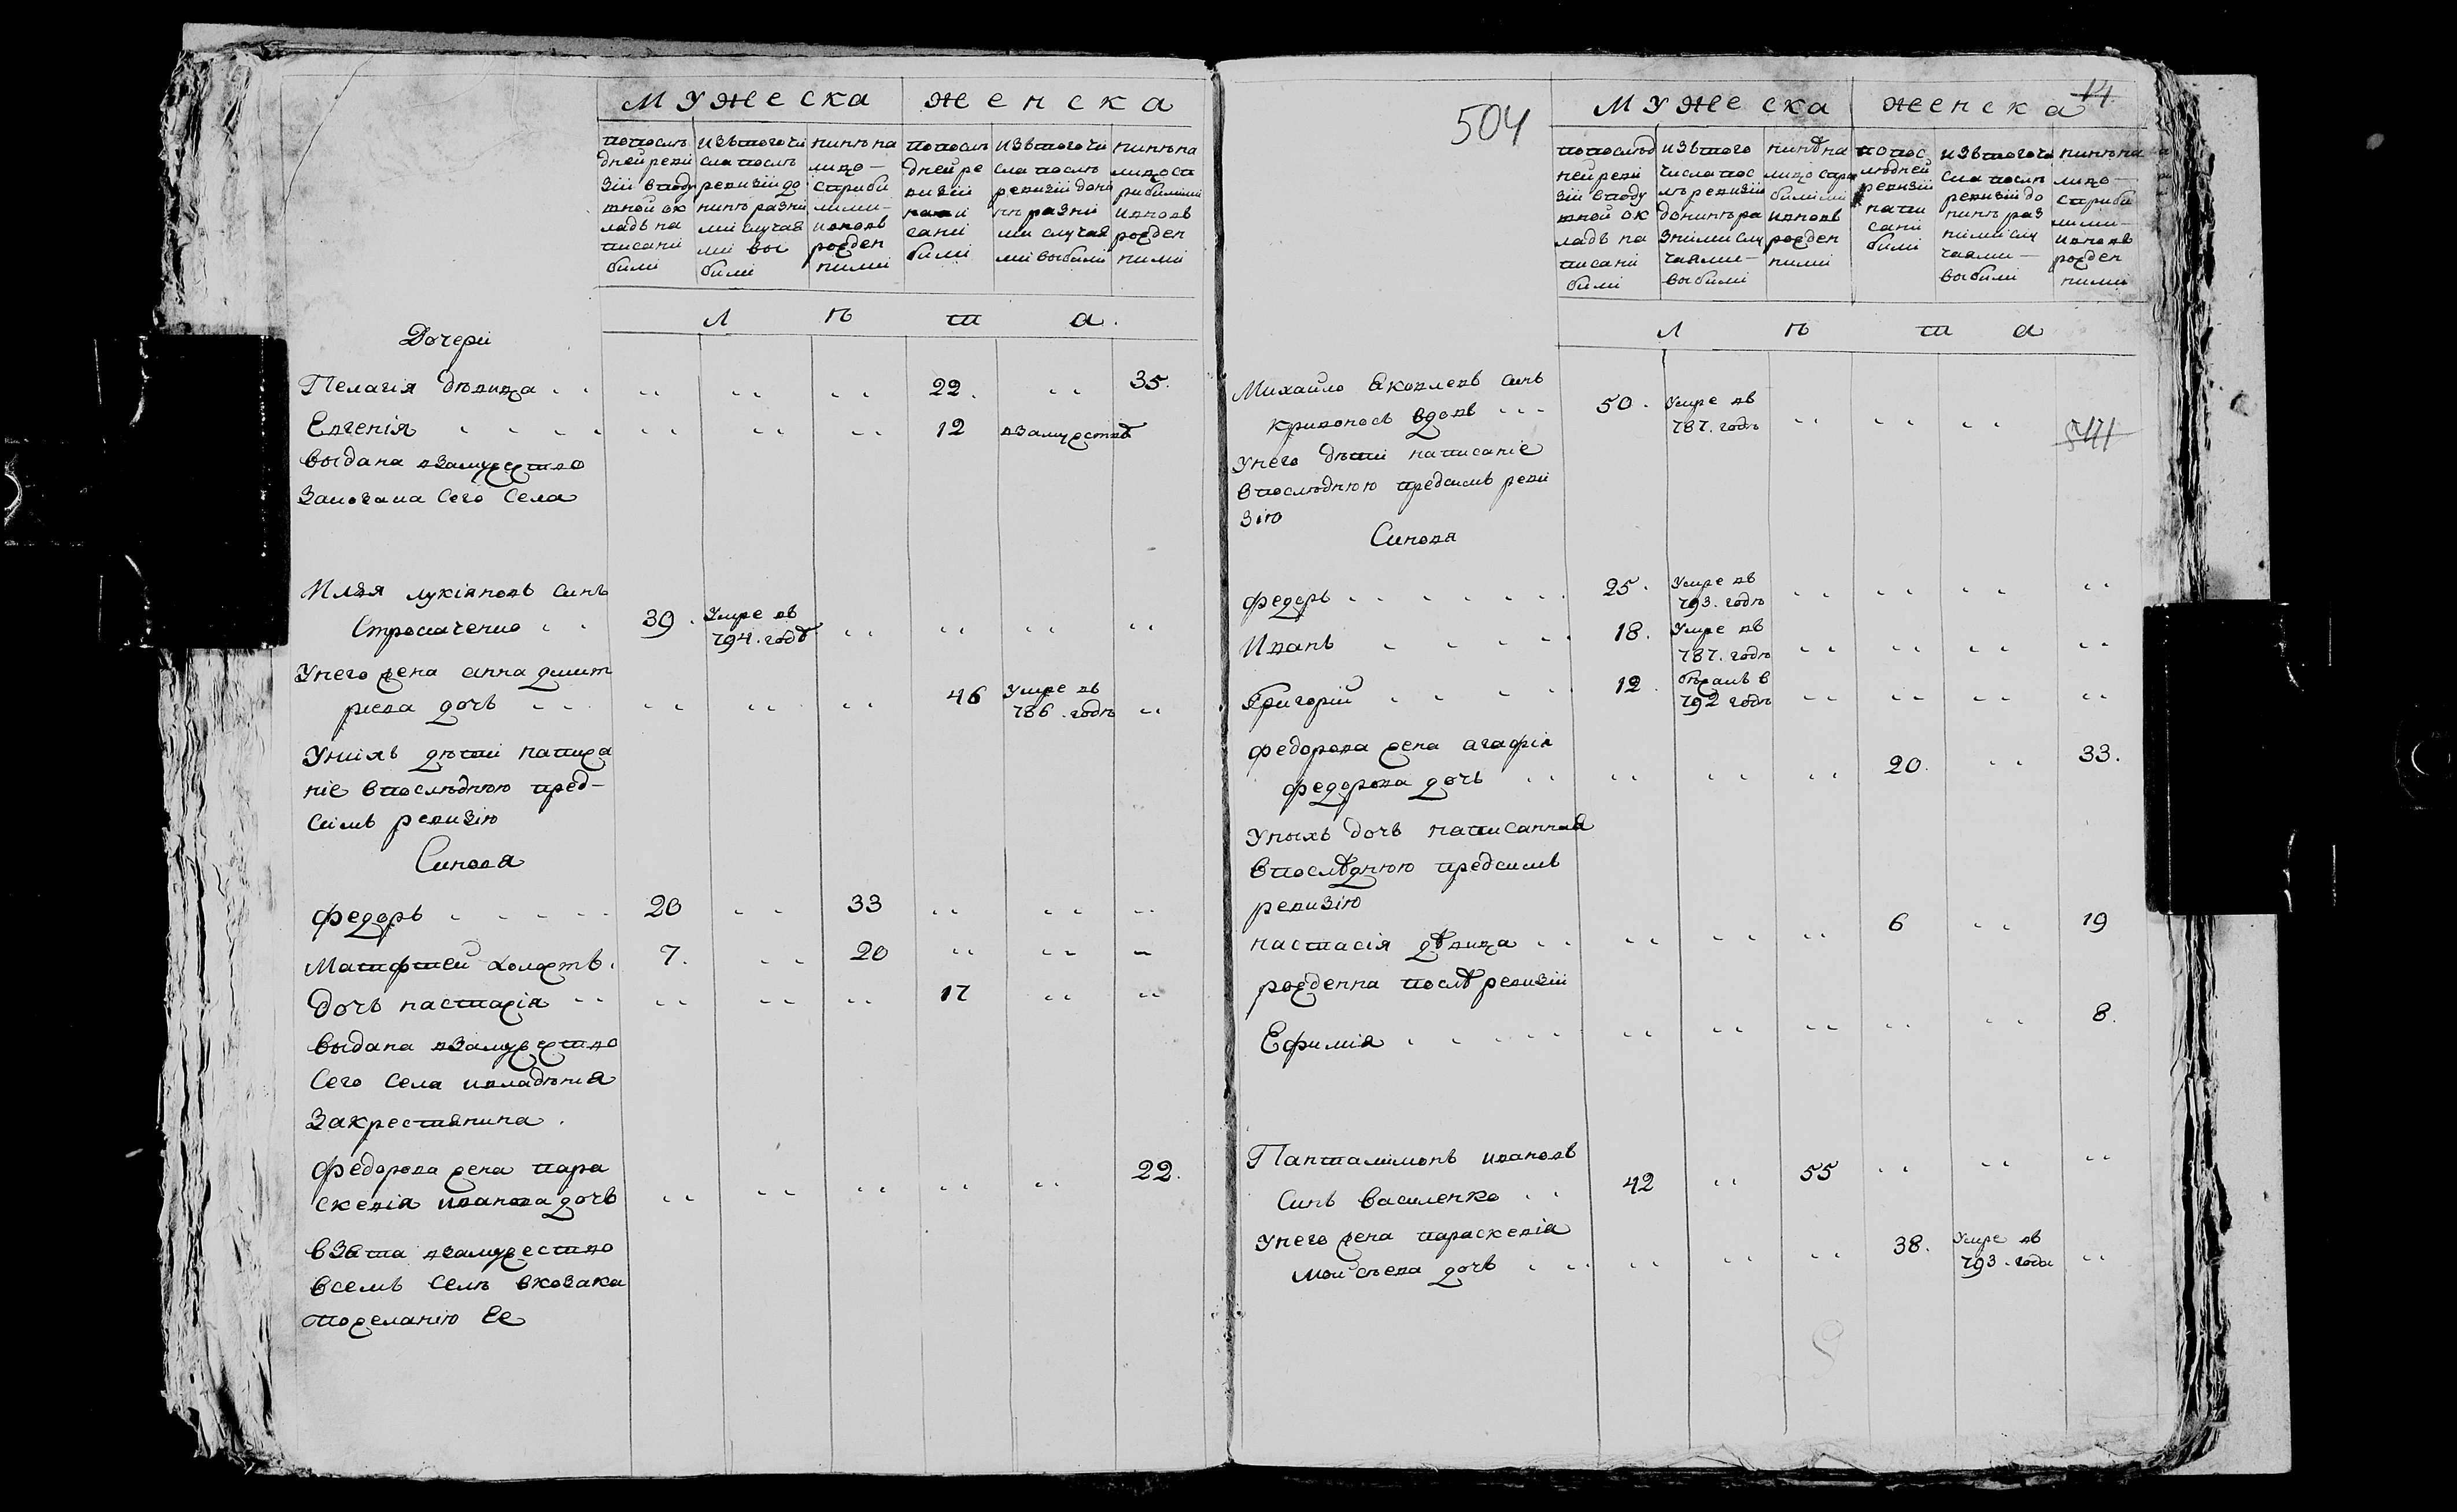 Мужеска Женска
попослѣ дней ревизіи в подушной окладъ написани били
изътогочи сла послѣ ревизіи до нинѣ разними случаями выбили
нинѣ на лицо старибилими и вновь рожденними
попослѣ дней ревизіи написани били
изътогочи сла послѣ ревизіи дони нѣ разними случаями выбили
нинѣ на лицо старибилими и вновь рожденними
Л ѣ т а.
Дочери
Пелагія дѣвица 22. 35.
Евгенія 12 взамужствѣ
Выдана взамужество
Закозака Сего Села
Илія лукіяновъ Синъ
Стромченко 39. Умре въ 794. годѣ
Унего жена анна дмит
ріева дочь 46 Умре въ 786. годѣ
Унихъ дѣти написа
ніе впослѣднюю пред-
Симъ ревизію
Синовя
Федоръ 20 33
Матфтей холостъ. 7. 20
Дочь настасія 17
Выдана взамужество
Сего Села ивладѣнія
Закрестянина.
Федорова жена пара
скевія иванова дочь 22.
Взята взамужество
Всемъ Селѣ вкозака
пожеланію Ее
504
14
Мужеска женска
попослѣд ней ревизіи в подушной окладъ написани били
изътого числа послѣ ревизіи донинѣ разними случаями выбили
нинѣ на лицо старибилими и вновь рожденними
попослѣдней ревизіи написани били
изътогочи сла послѣ ревизіи до нинѣ разними случаями выбили
нинѣ на лицо старибилими и вновь рожденними
Л ѣ т а
Михайло Яковлевъ Синъ
Кривоносъ вдовъ 50. Умре въ 787. годѣ
Унего дѣти написаніе
впослѣднюю предсимъ реви
зію
Синовя
Федоръ 25. Умре въ 793. годѣ
Иванъ 18. Умре въ 787. годѣ
Григорій 12. бѣжалъ в 792 годѣ
Федорова жена агафія
федорова дочь 20. 33.
Уныхъ дочь написанная
впослѣднюю предсимъ
ревизію
настасія дѣвица 6 19
рожденна послѣ ревизіи
Ефимія 8.
Панталимонъ ивановъ
Синъ василенко 42 55
Унего жена параскевія
Мойсѣева дочь 38. Умре въ 793. годы